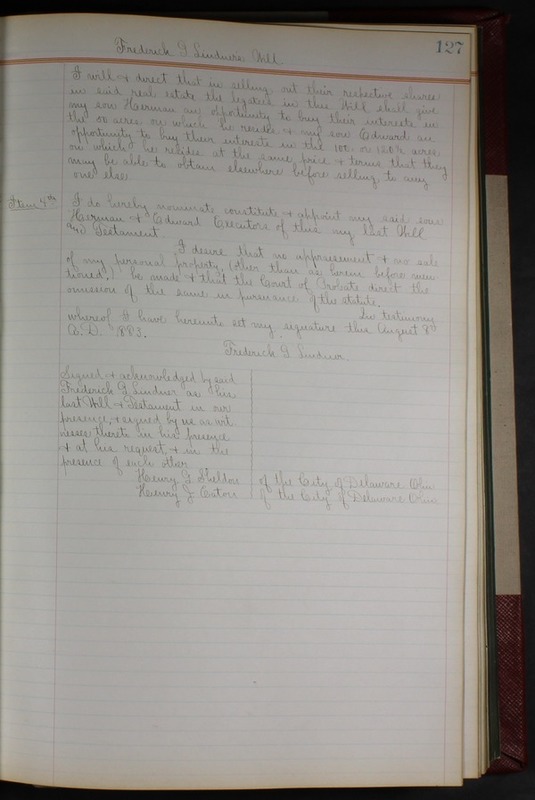 Frederick G Lindners Will
127
I will & direct that in selling out their respective shares
in said real estate the legatees in this Will shall give
my son Herman an opportunity to buy their interests in
the 80 acres on which he resides & my son Edward an
opportunity to buy their interests in the 100 or acres
on which he resides at the same price & terms that they
may be able to obtain elsewhere before selling to any
one else
Item 4th
I do hereby nominate constitute & appoint my said sons
Herman & Edward Executors of this my last Will
and Testament
I desire that no appraisement & no sale
of my personal property, (other than as herein before men
tioned,) be made & that the Court of Probate direct the
omission of the same in pursuance of the statute.
In testimony
whereof I have hereunto set my signature this August 8th
A.D. 1883.
Frederick G. Lindner.
Signed & acknowledged by said
Frederick G Lindner as his
last Will & Testament in our
presence, & signed by us as wit
nesses thereto in his presence
& at his request, & in the
presence of each other
Henry G Sheldon of the City of Delaware Ohio
Henry J. Eaton of the City of Delaware Ohio